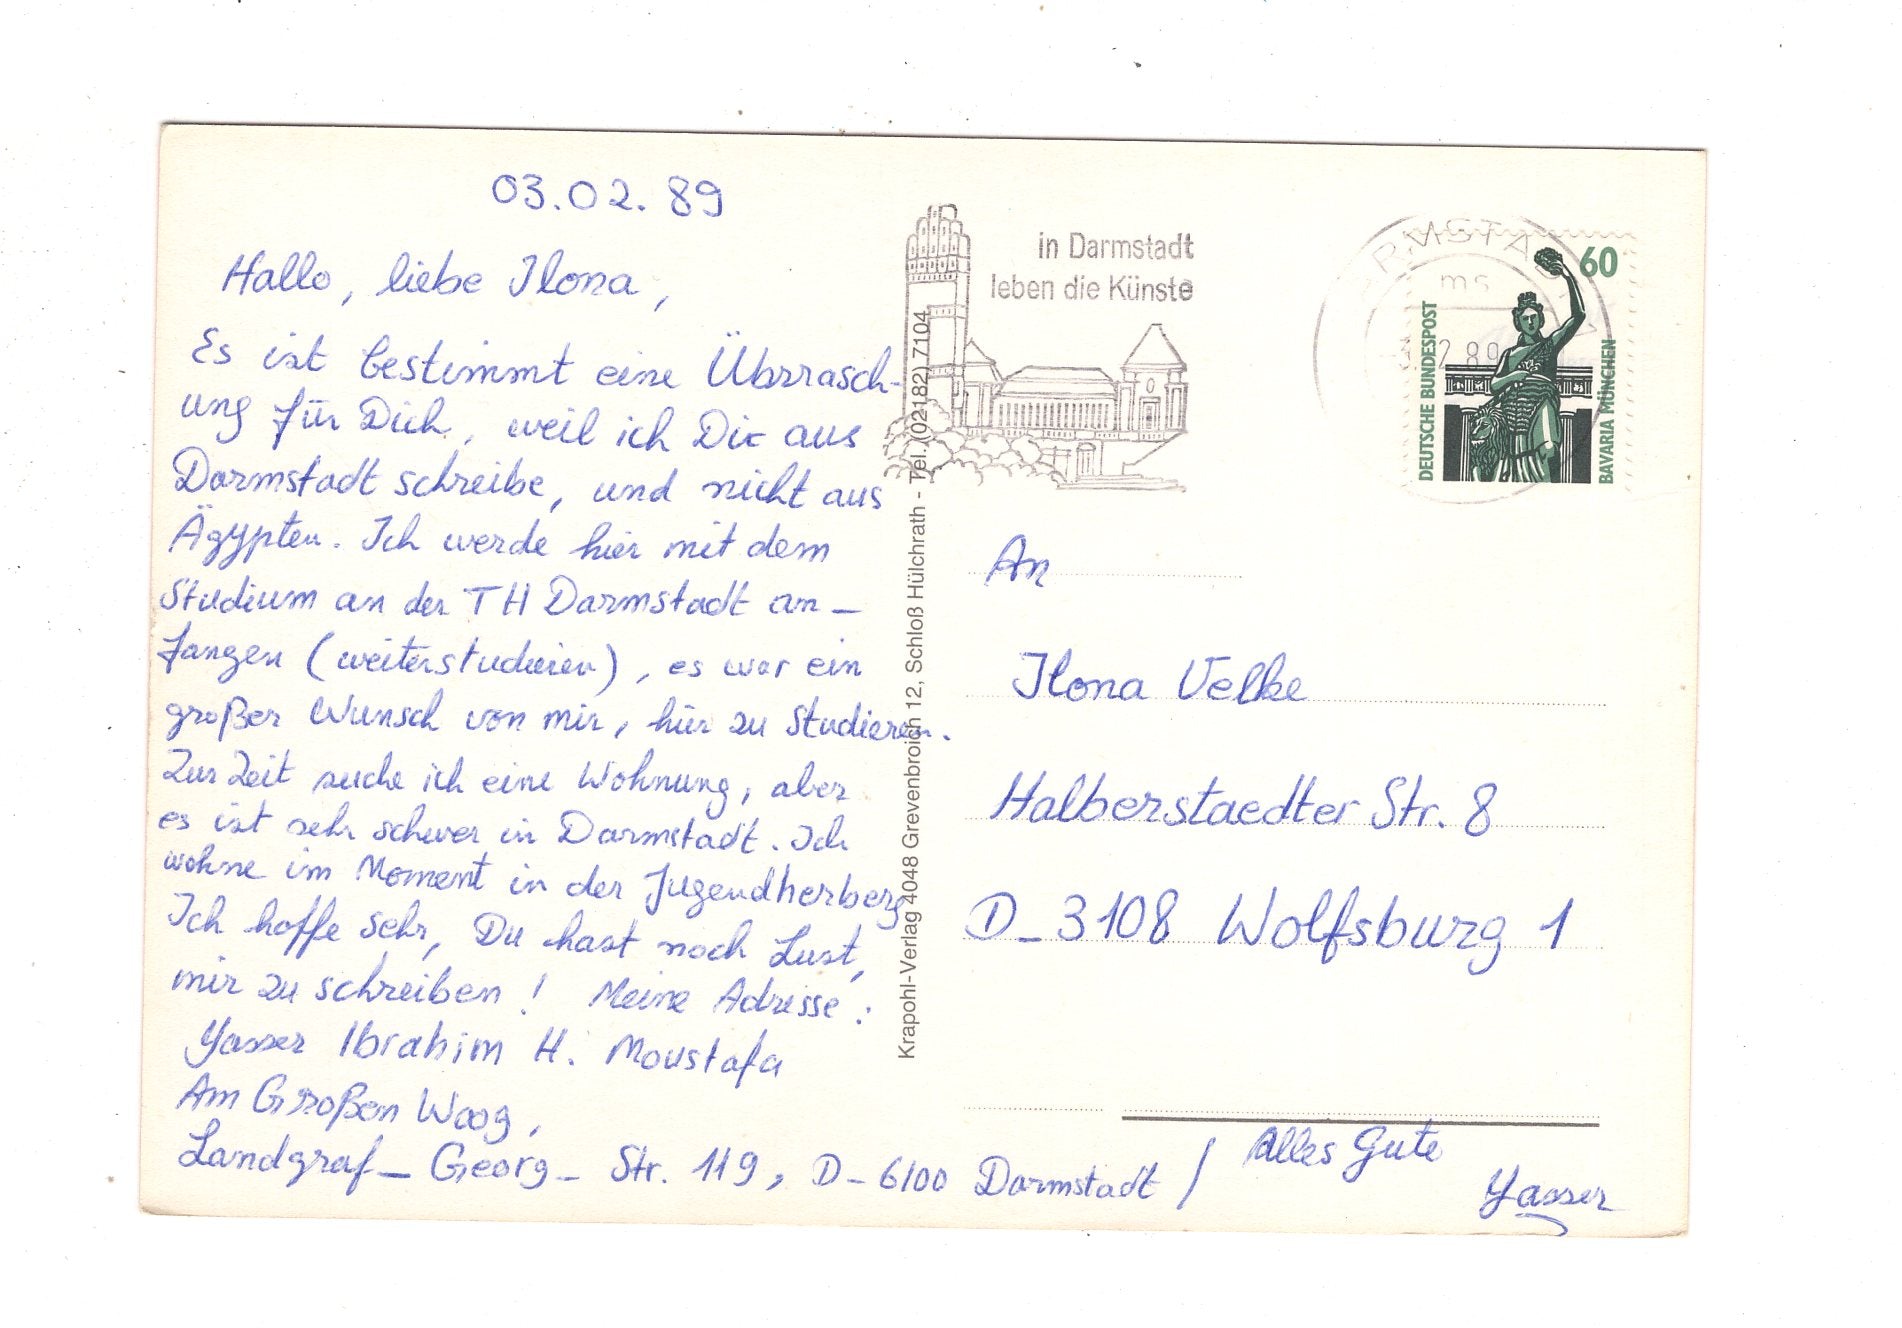 03.02.89
Hallo, liebe Ilona,
Es ist bestimmt eine Überrasch-
ung für Dich, weil ich Dir aus
Darmstadt schreibe, und nicht aus
Ägypten. Ich werde hier mit dem
Studium an der TH Darmstadt an-
fangen (weiterstudieren), es war ein
großer Wunsch von mir, hier zu studieren.
Zur Zeit suche ich eine Wohnung, aber
es ist sehr schwer in Darmstadt. Ich
wohne im Moment in der Jugendherberg
Ich hoffe sehr, Du hast noch Lust,
mir zu schreiben! Meine Adresse:
Yasser Ibrahim H. Moustafa
Am Großen Woog,
Landgraf-Georg-Str. 119, D-6100 Darmstadt /
Alles Gute
Yasser
Krapohl-Verlag 4048 Grevenbroich 12, Schloß Hülchrath - Tel. (02182) 7104
in Darmstadt
leben die Künste
DARMSTADT
ms
2.89
60
DEUTSCHE BUNDESPOST
BAVARIA MÜNCHEN
An
Ilona Velke
Halberstaedter Str. 8
D-3108 Wolfsburg 1